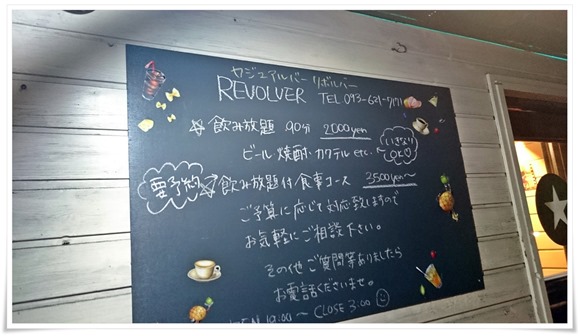 カジュアルバー リボルバー
REVOLVER TEL 093-621-7171
飲み放題 90分 2000yen
ビール 焼酎 カクテル etc.
いきなりOK
要予約 飲み放題付 食事コース 3500yen〜
ご予算に応じて対応致しますので
お気軽にご相談下さい。
その他ご質問等ありましたら
お電話くださいませ。
〜 CLOSE 3:00